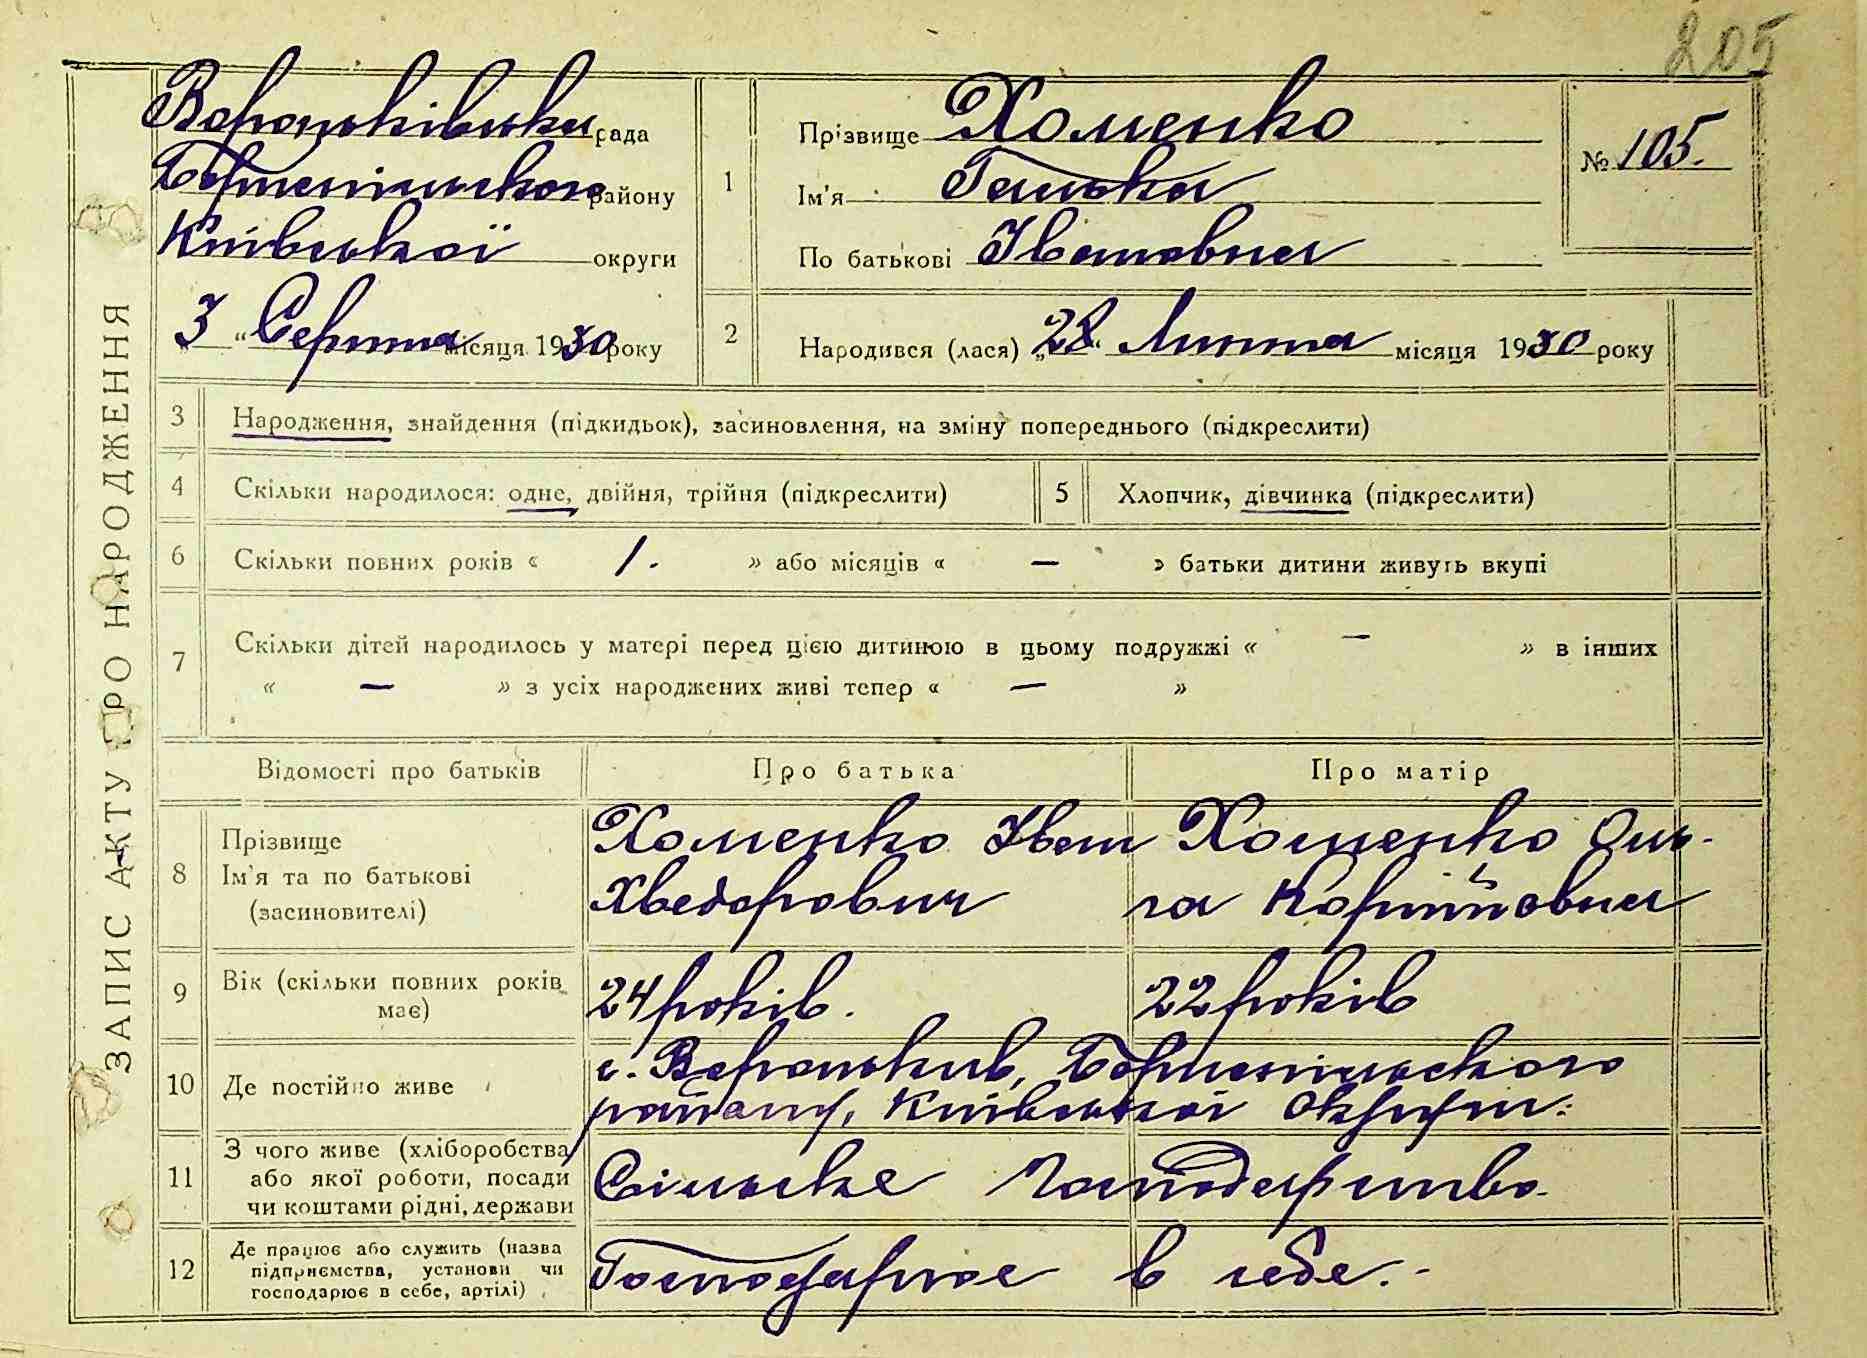 205
ЗАПИС АКТУ ПРО НАРОДЖЕННЯ
Вороньківська рада
Бориспільського району
Київської округи
3 „ Серпня місяця 1930 року
1
Прізвище Хоменко
Ім'я Галька
По батькові Івановна
№ 105.
2
Народився (лася) „28“ Липня місяця 1930 року
3 Народження, знайдення (підкидьок), засиновлення, на зміну попереднього (підкреслити)
4 Скільки народилося: одне, двійня, трійня (підкреслити)
5 Хлопчик, дівчинка (підкреслити)
6 Скільки повних років « 1. » або місяців « — » батьки дитини живуть вкупі
7 Скільки дітей народилось у матері перед цією дитиною в цьому подружжі « — » в інших
« — » з усіх народжених живі тепер « — »
Відомості про батьків Про батька Про матір
8 Прізвище
Ім'я та по батькові
(засиновителі)
Хоменко Іван
Хведорович
Хоменко Оль-
га Корніївовна
9 Вік (скільки повних років
має)
24 років. 22 років
10 Де постійно живе
с. Вороньків, Бориспільського
району, Київської Округи.
11 З чого живе (хліборобства
або якої роботи, посади
чи коштами рідні, держави
Сільське Господарство.
12 Де працює або служить (назва
підприємства, установи чи
господарює в себе, артілі)
Господарює в себе.